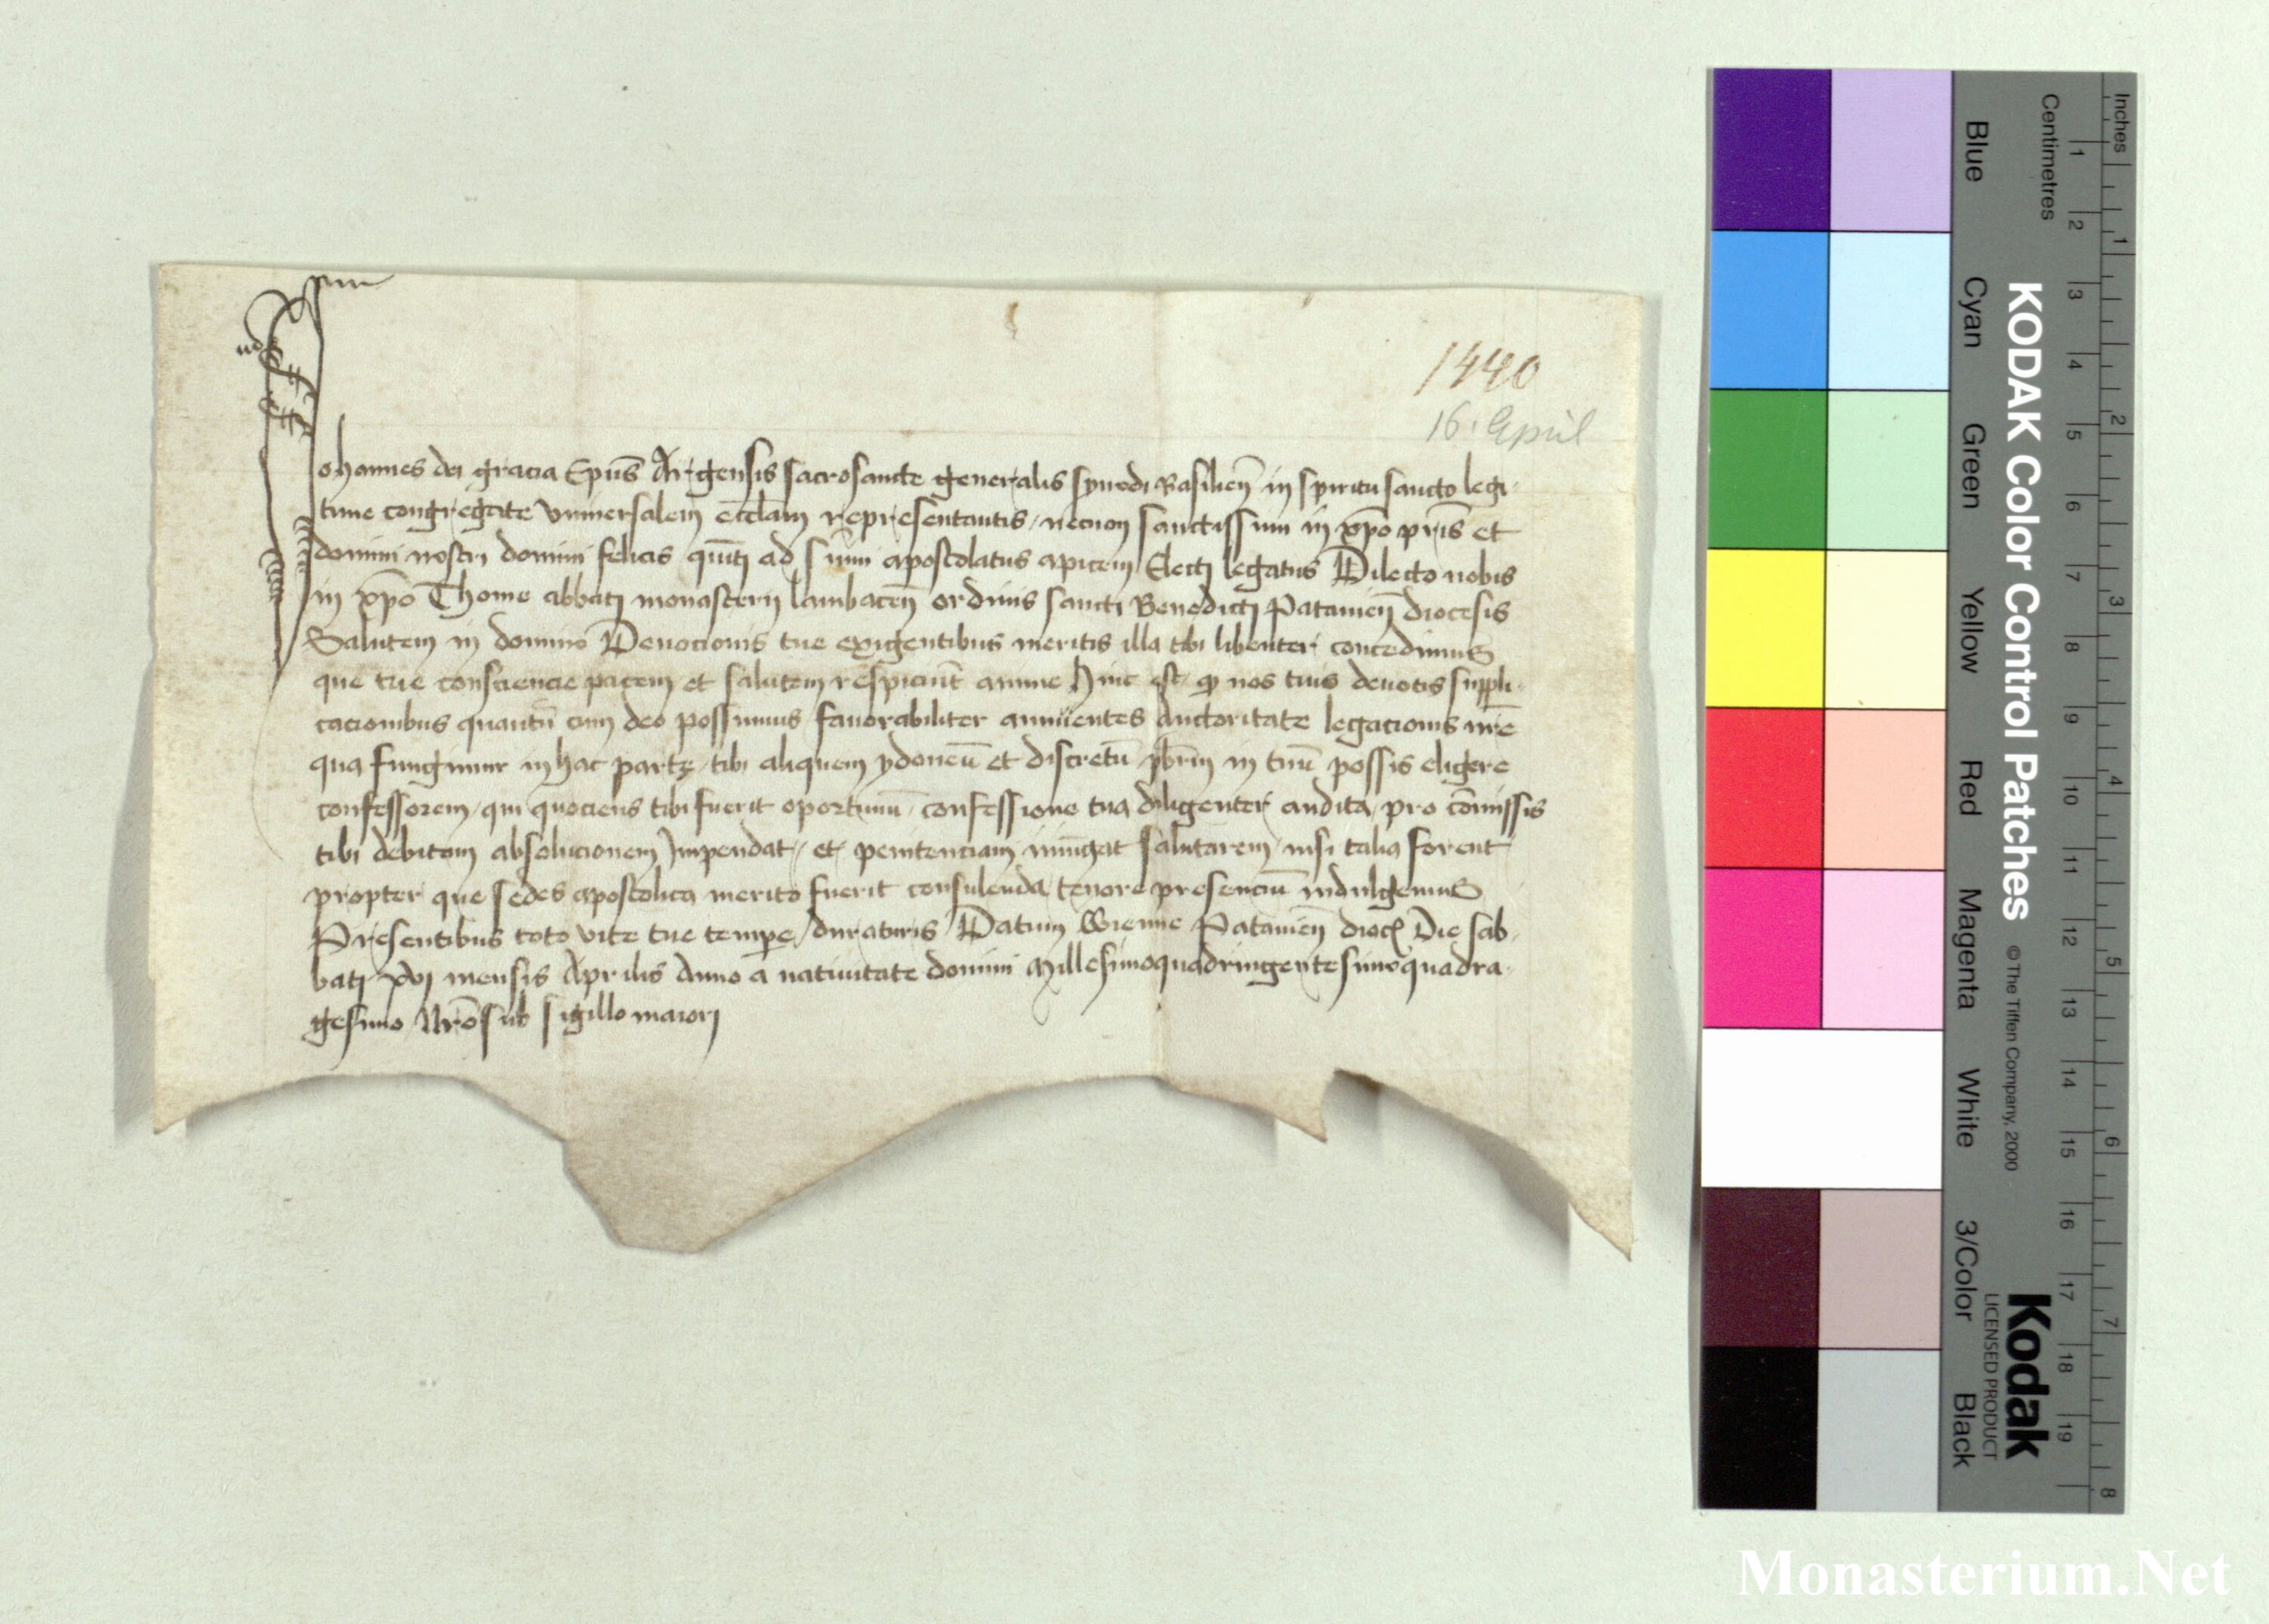 1440
16. April
Johannes dei gracia Ep̄us Argensis sacrosancte generalis synodi Basilien̄ in spiritusancto legi-
time congregate vniuersalem ecc̄lam representantis / necnon sanctissimi in xp̄o pr̄is et
domini nostri domini felicis quīti ad sum̄i apostolatus apicem Electi legatus Dilecto nobis
in xp̄o Thome abbati monasterij lambacen̄ ordinis sancti Benedicti Patauien̄ diocesis
Salutem in domino Deuocionis tue exigentibus meritis illa tibi libenter concedimus
que tue consciencie pacem et salutem respiciūt anime Hinc est / ꝙ nos tuis deuotis suppli-
cacionibus quantū cum deo possumus fauorabiliter annuentes Auctoritate legacionis nr̄e
qua fungimur in hac parte / tibi aliquem ydoneū et discretū pbr̄m in tuū possis eligere
confessorem / qui quociens tibi fuerit oportunū / confessione tua diligenter audita / pro cōmissis
tibi debitam absolucionem Impendat / et penitenciam iniūgat salutarem / nisi talia forent
propter que sedes apostolica merito fuerit consulenda / tenore presenciū indulgemus
Presentibus toto vite tue tempe / duraturis Datum Wienne Patauien̄ dioc̄ Die sab-
bati xvj mensis Aprilis Anno a natiuitate domini Millesimoquadringentesimoquadra-
gesimo Nr̄o sub sigillo maiori
Inches
Centimetres
1 2 3 4 5 6 7 8 9 10 11 12 13 14 15 16 17 18 19
1 2 3 4 5 6 7 8
KODAK Color Control Patches
© The Tiffen Company, 2000
Kodak
LICENSED PRODUCT
Blue
Cyan
Green
Yellow
Red
Magenta
White
3/Color
Black
Monasterium.Net